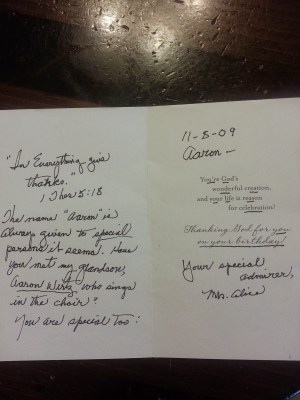 "In Everything give
thanks."
1 Thes 5:18
The name "Aaron" is
always given to special
persons it seems. Have
you met my grandson,
Aaron Wirtz who sings
in the choir?
You are special too!
11-8-09
Aaron —
You're God's
wonderful creation,
and your life is reason
for celebration!
Thanking God for you
on your birthday!
Your special
admirer,
Mrs. Alice